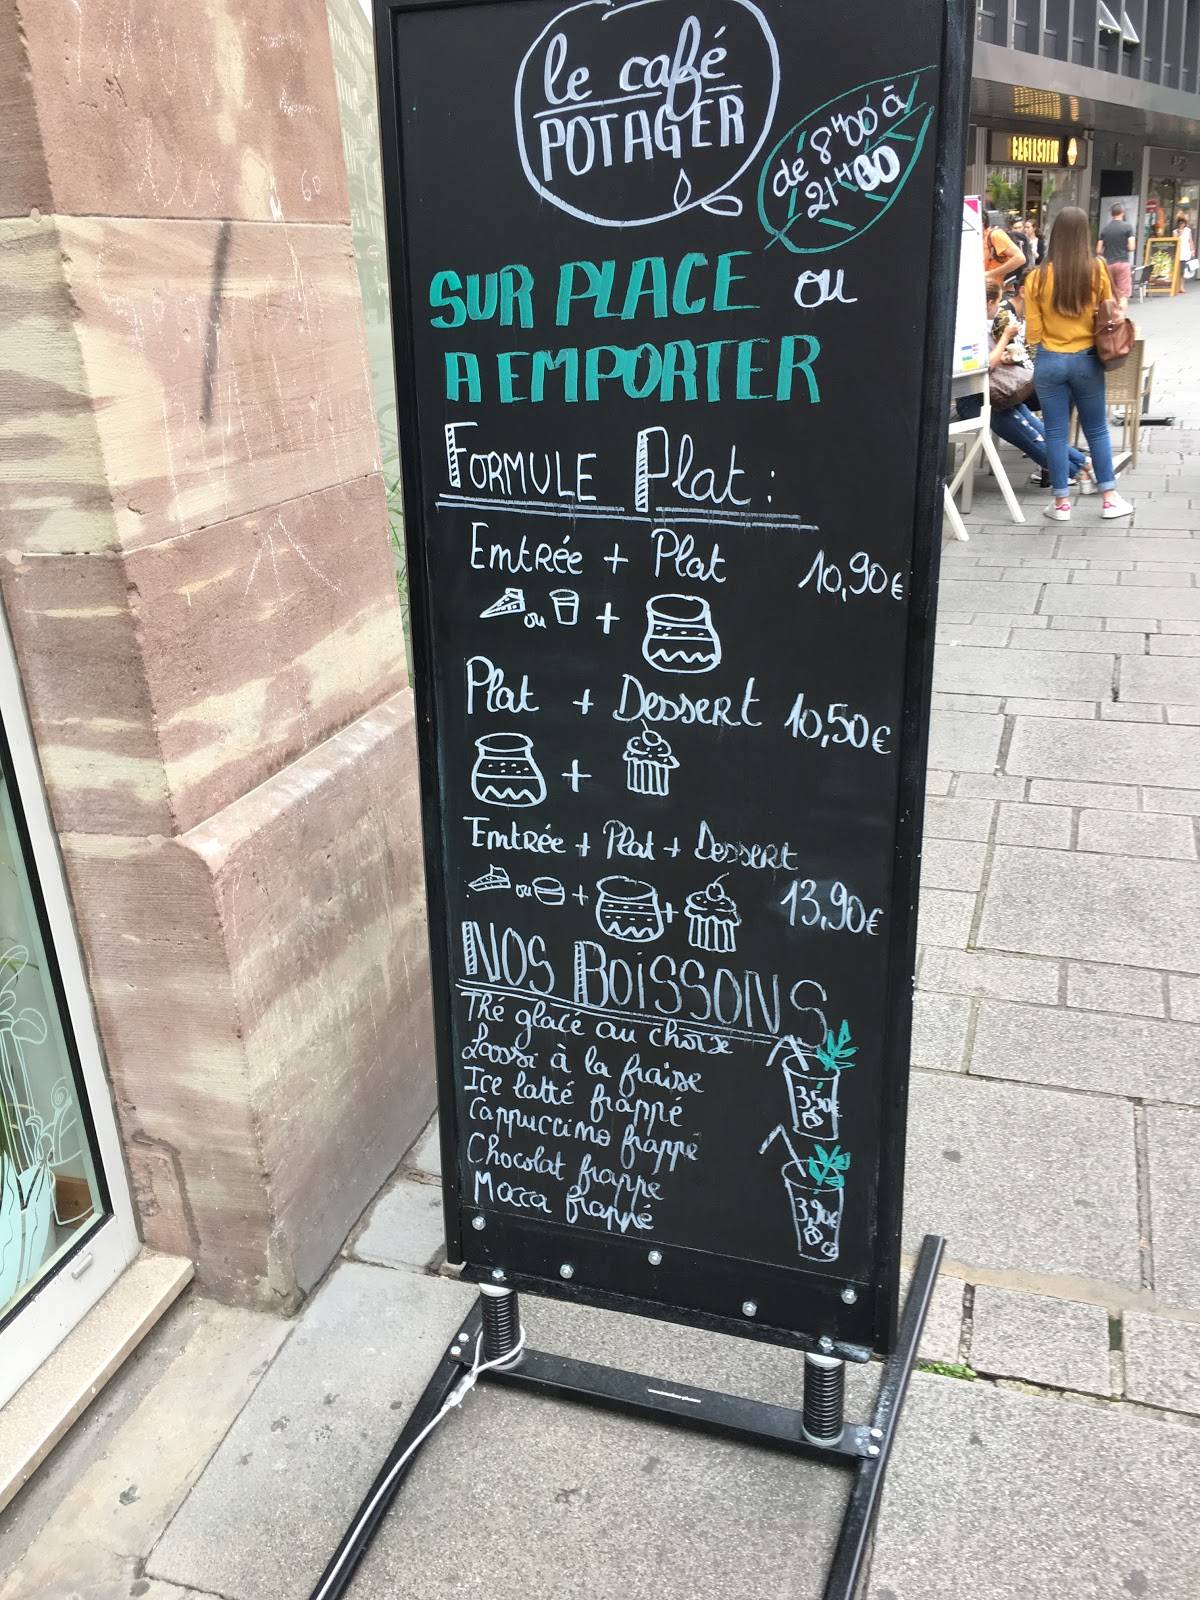 le café
POTAGER
de 8H00 à
21H00
SUR PLACE ou
A EMPORTER
FORMULE Plat :
Entrée + Plat 10,90€
ou +
Plat + Dessert 10,50€
+
Entrée + Plat + Dessert
ou + + 13,90€
NOS BOISSONS
Thé glacé au choix
Lassi à la fraise
Ice latté frappé
3,50€
Cappuccino frappé
Chocolat frappe
Mocca frappé
3,90€